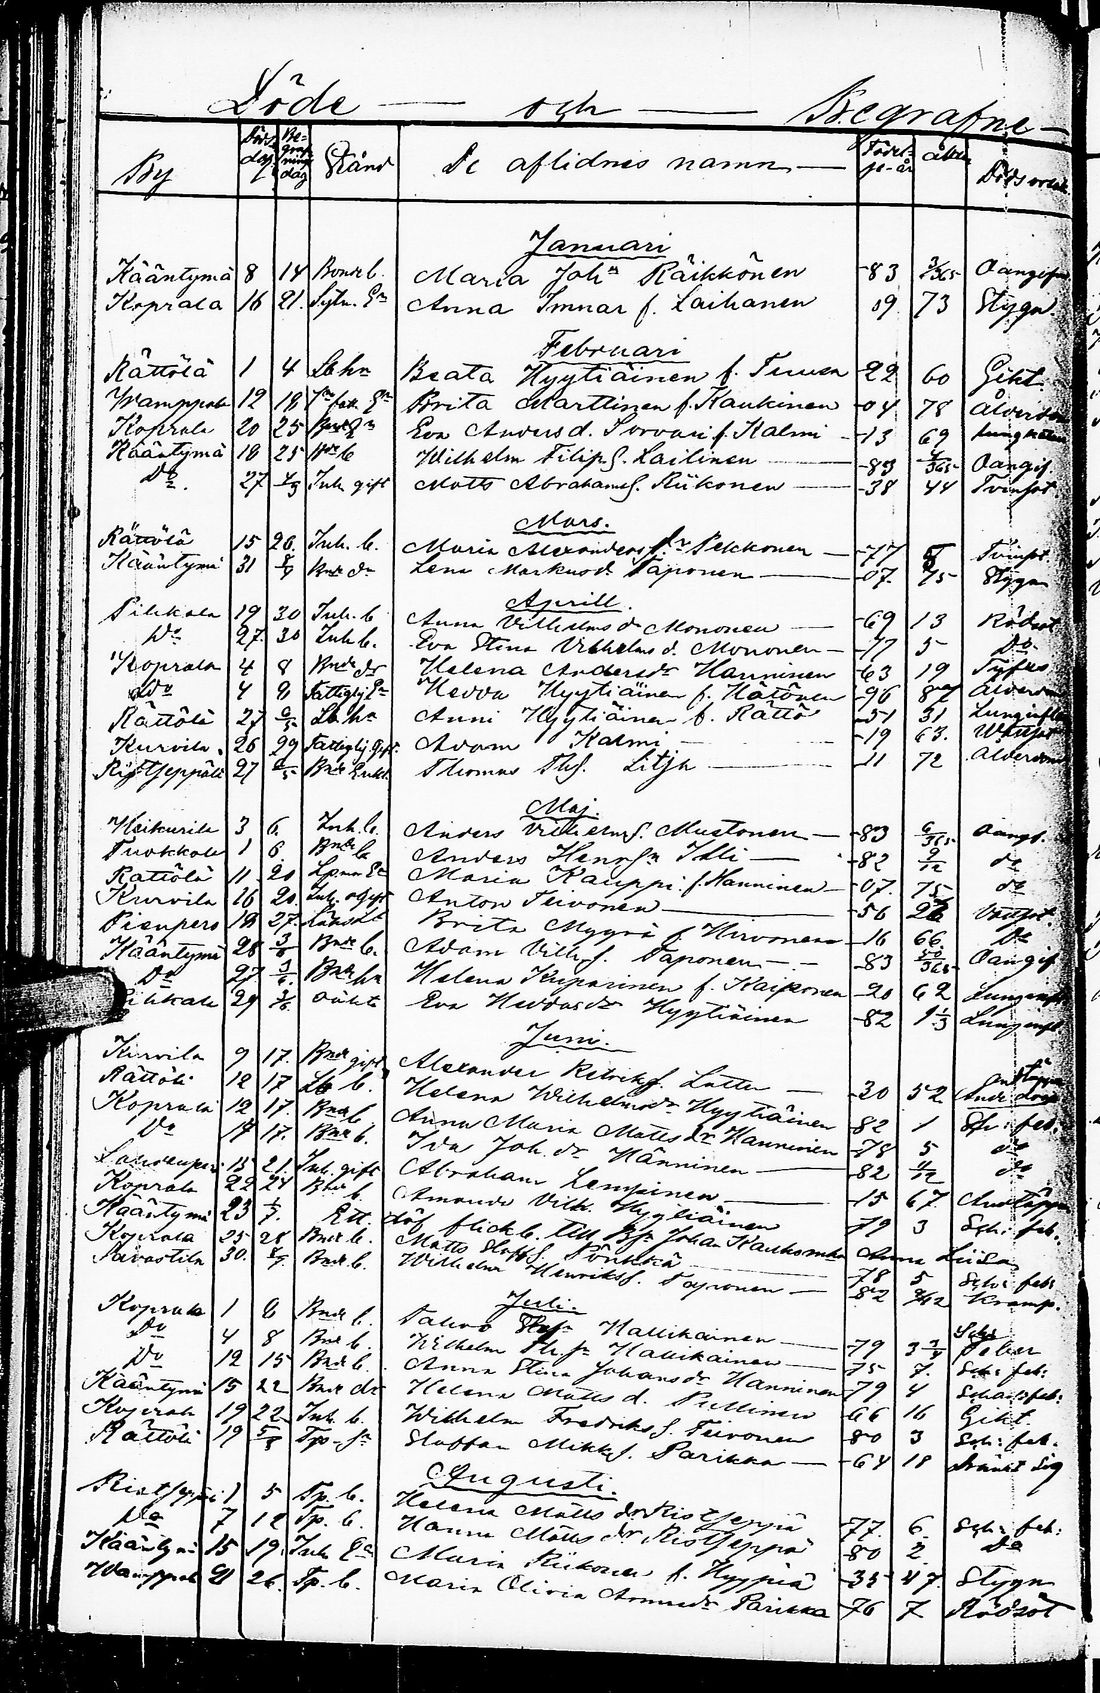 Döde — och — Begrafne —
By Döds dag Be- graf nings dag Stånd De aflidnes namn Födel- se-år ålder Dödsorsak
Januari
Kääntymä 8 14 Bonde b. Maria Joh:n Räikkönen -83 3/365 Oangifven
Koprala 16 21. Anna Immar f. Laihanen 09 73 Stygn.
Februari
Rättölä 1 4 Lb hu Beata Hyytiäinen f. Teuva -22 60 Gikt
Wamppala 12 18 Brita Marttinen f. Kaukinen -04 78 Ålderdom
Koprala 20 25 Eva Anders d. Torvari f. Kalmi -13 69
Kääntymä 18 25 b Wilhelm Filip S. Lailinen -83 4/365 Oangif.
Do 27 4/3 Inh. gift Matts Abrahams S. Riikonen -38 44 Tvinsot
Mars.
Rättölä 15 26. Inh. b. Maria Alexanders dr Pekkonen -77 5 Tvinsot
Kääntymä 31 8/4 Lena Markus d. Taponen -07. 75 Stygn
Aprill.
Pihkala 19 30 Inh. b Anna Vilhelms dr Mononen -69 13 Rödsot
Do 27. 30 Inh b. Eva Stina Vilhelms d. Mononen -77 5 Do
Koprala 4 8 Bnde dr Helena Anders dr Hanninen -63 19 Tyfus
Do 4 8 Fattighj En Hedda Hyytiäinen f. Hätönen -96 87 Ålderdom
Rättölä 27 6/5 Lb hu Anni Hyytiäinen f. Rättö -51 31 Lunginfl
Kurvila. 26 29 Fattighj Gift. Adam Kalmi -19 63. Wattsot
Ristseppälä 27 6/5 Bnde Enkl. Thomas Ths. Litja -11 72 Ålderdom
Maj
Heikurila 3 6. Inh. b. Anders Vilhelms S. Mustonen -83 6/365 Oangf.
Tuokkola 1 6. Bnde b Anders Henr Sn Ihli -82 9/12 do
Rättölä 11. 20 Maria Kauppi f. Hanninen -07. 75 do
Kurvila 16 20. Inh. gift Anton Teivonen -56 26 Vattsot.
Pienpers 18 27. Brita Myyrä f Hirvonen -16 66. Do
Kääntymä 28 3/6 Bnde b. Adam Vilh S. Taponen -83 50/365 Oangif.
Do 27. 3/6. Bnde hu Helena Kuparinen f. Kaiponen -20 62 Lunginfl
Pihkala 29 3/6. oäkta Eva Heddas dr Hyytiäinen -82 1 1/3 Lunginfl
Juni.
Kurvila 9 17. Bnde gift Alexander Retriks S. Latta -30 52
Rättölä 12 17 Lb b. Helena Wilhelms dr Hyytiäinen 82 1 Sch: feb.
Koprala 12 17. Bnde b Anna Maria Matts dr Hanninen -78 5 do
Do 17 17. Bnde b. Ida Joh. dr Hänninen 82 do
15 21. Inh. gift Abraham Lempinen -15 67.
Koprala 22 24 Bnde b. Amanda Vilh. Hyytiäinen 79 3 Sch: feb.
Kääntymä 23 1/7. Ett död flick b. till Bs: Johan Anna Liisa
Koprala 25 28 Bnde b. Matts Staff S. Pönkkiä 78 5 Sch: feb:
Savastila 30. 8/7 Bnde b. Wilhelm Henriks S. Taponen 82 Kramp.
Juli.
Koprala 1 8 Bnde b. Halikainen 79 3 Sch: Feber
Do 4 8 Bnde b. Wilhelm Halikainen 75 7. Sch: feb:
Do 12 15 Bnde b. Anna Stina Johans dr Hanninen 79 4
Kääntymä 15 22 Bnde dr Helena Matts d. Pullinen 66 16 Gikt.
Koprala 19 22 Inh. b. Wilhelm Fredriks S. Teivonen -80 3 Sch: feb.
Rättölä 19 5/8 Tp-Sn Staffan Mikk S. Parikka -64 18 dränkt sig
Augusti.
Ristseppälä 1 5 Tp. b. Helena Matts dr Ristseppä 77. 6. Sch: feb:
Do 7 12 Tp. b. Hanna Matts dr Ristseppä -80 2. Do
Kääntymä 15 19. Inh En Maria Riikonen f. Hyypiä -35 47. Stygn
Wamppala 21 26. Tp. b. Maria Olivia dr Parikka -76 7 Rödsot